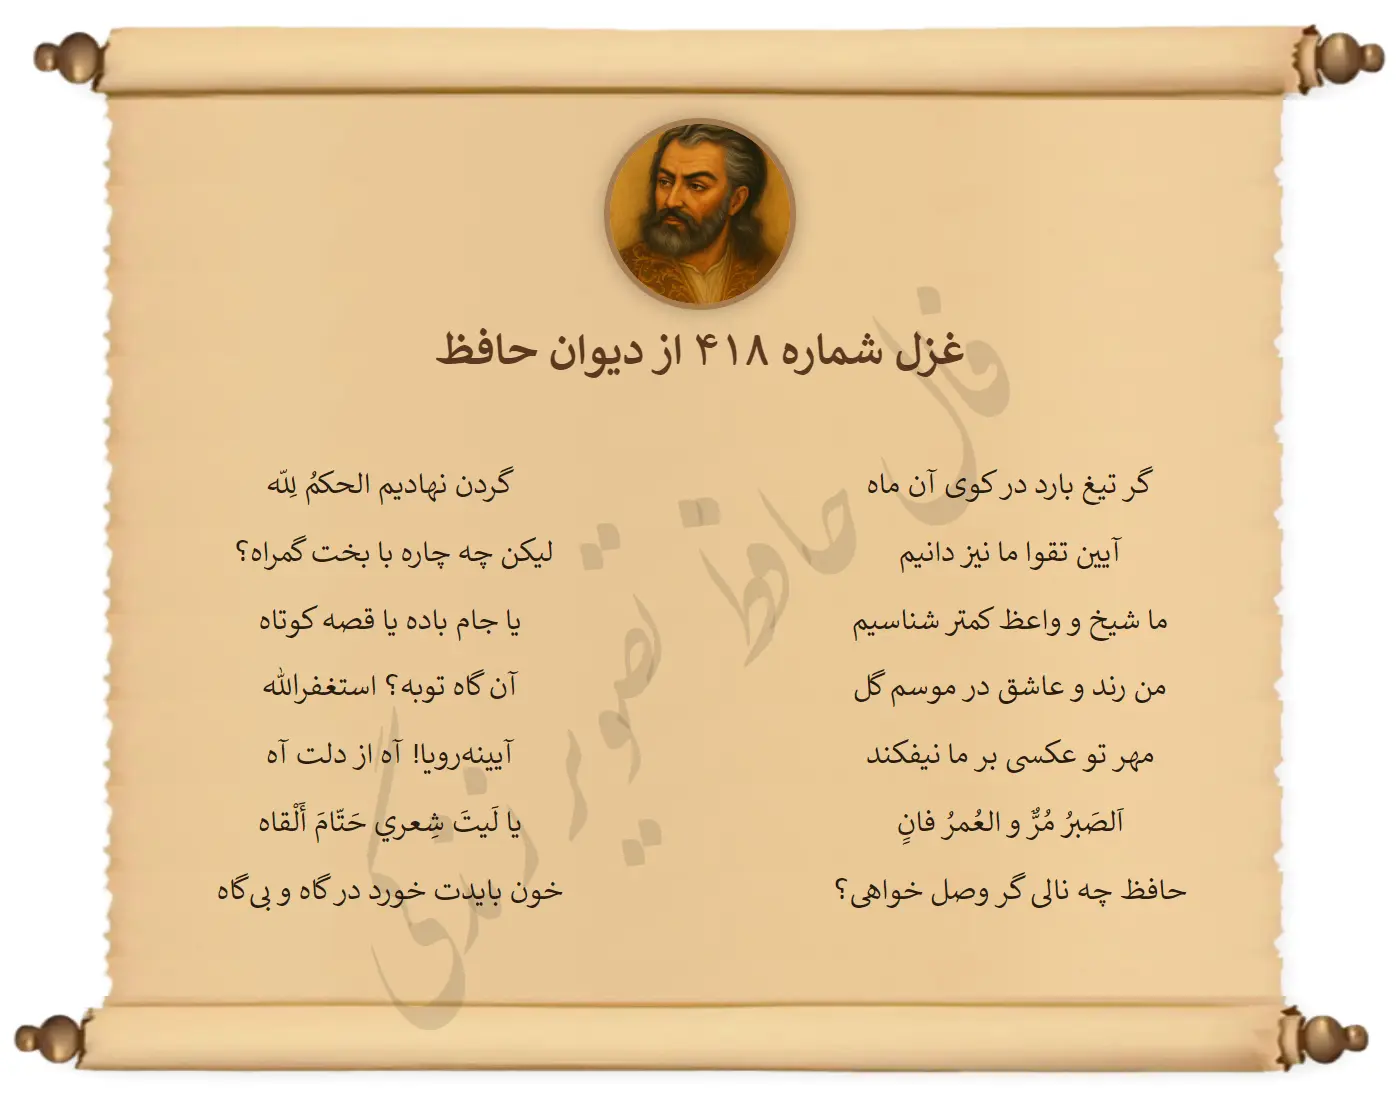 غزل شماره ۴۱۸ از دیوان حافظ
گر تیغ بارد در کوی آن ماه
گردن نهادیم الحکمُ لِلّه
آیین تقوا ما نیز دانیم
لیکن چه چاره با بخت گمراه؟
ما شیخ و واعظ کمتر شناسیم
یا جام باده یا قصه کوتاه
من رند و عاشق در موسم گل
آن گاه توبه؟ استغفرالله
مهر تو عکسی بر ما نیفکند
آیینه‌رویا! آه از دلت آه
اَلصَبرُ مُرٌّ و العُمرُ فانٍ
یا لَیتَ شِعري حَتّامَ أَلْقاه
حافظ چه نالی گر وصل خواهی؟
خون بایدت خورد در گاه و بی‌گاه
فال حافظ تصویر زندگی